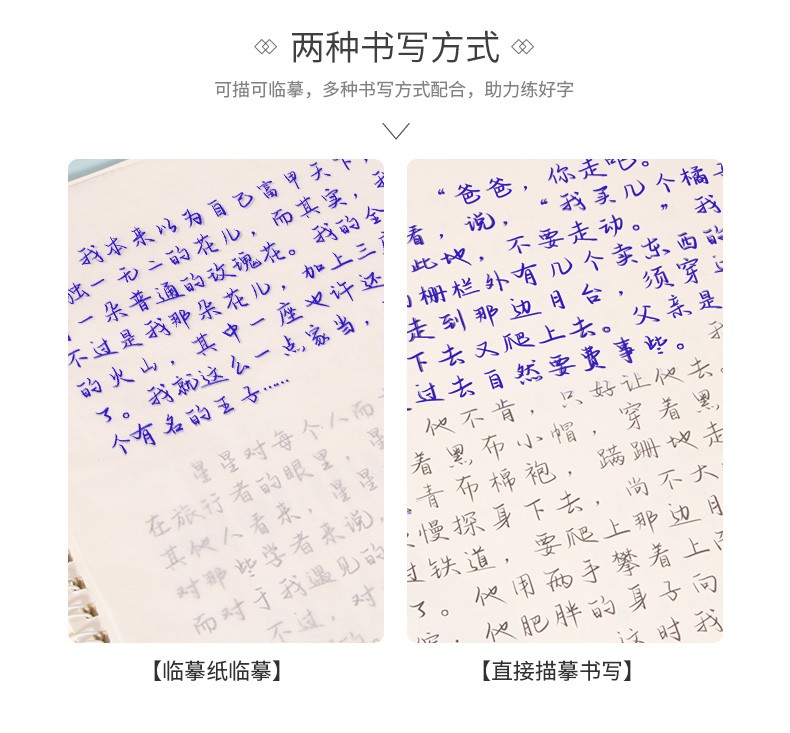 两种书写方式
可描可临摹，多种书写方式配合，助力练好字
我本来以为自己富甲天下，
独一无二的花儿，而其实，我
一朵普通的玫瑰花。我的全
不过是我那朵花儿，加上三座
的火山，其中一座也许还
了。我就这么一点家当，
个有名的王子……
星星对每个人而言
在旅行者的眼里，星
其他人看来，星星
对那些学者来说，
而对于我遇见的
不过，对
“爸爸，你走吧。”
看，说，“我买几个橘子
此地，不要走动。”我
的栅栏外有几个卖东西的
走到那边月台，须穿过
下去又爬上去。父亲是
过去自然要费事些。我
他不肯，只好让他去。
着黑布小帽，穿着黑
青布棉袍，蹒跚地走
慢探身下去，尚不大
过铁道，要爬上那边月
了。他用两手攀着上面
他肥胖的身子向
这时我
【临摹纸临摹】
【直接描摹书写】